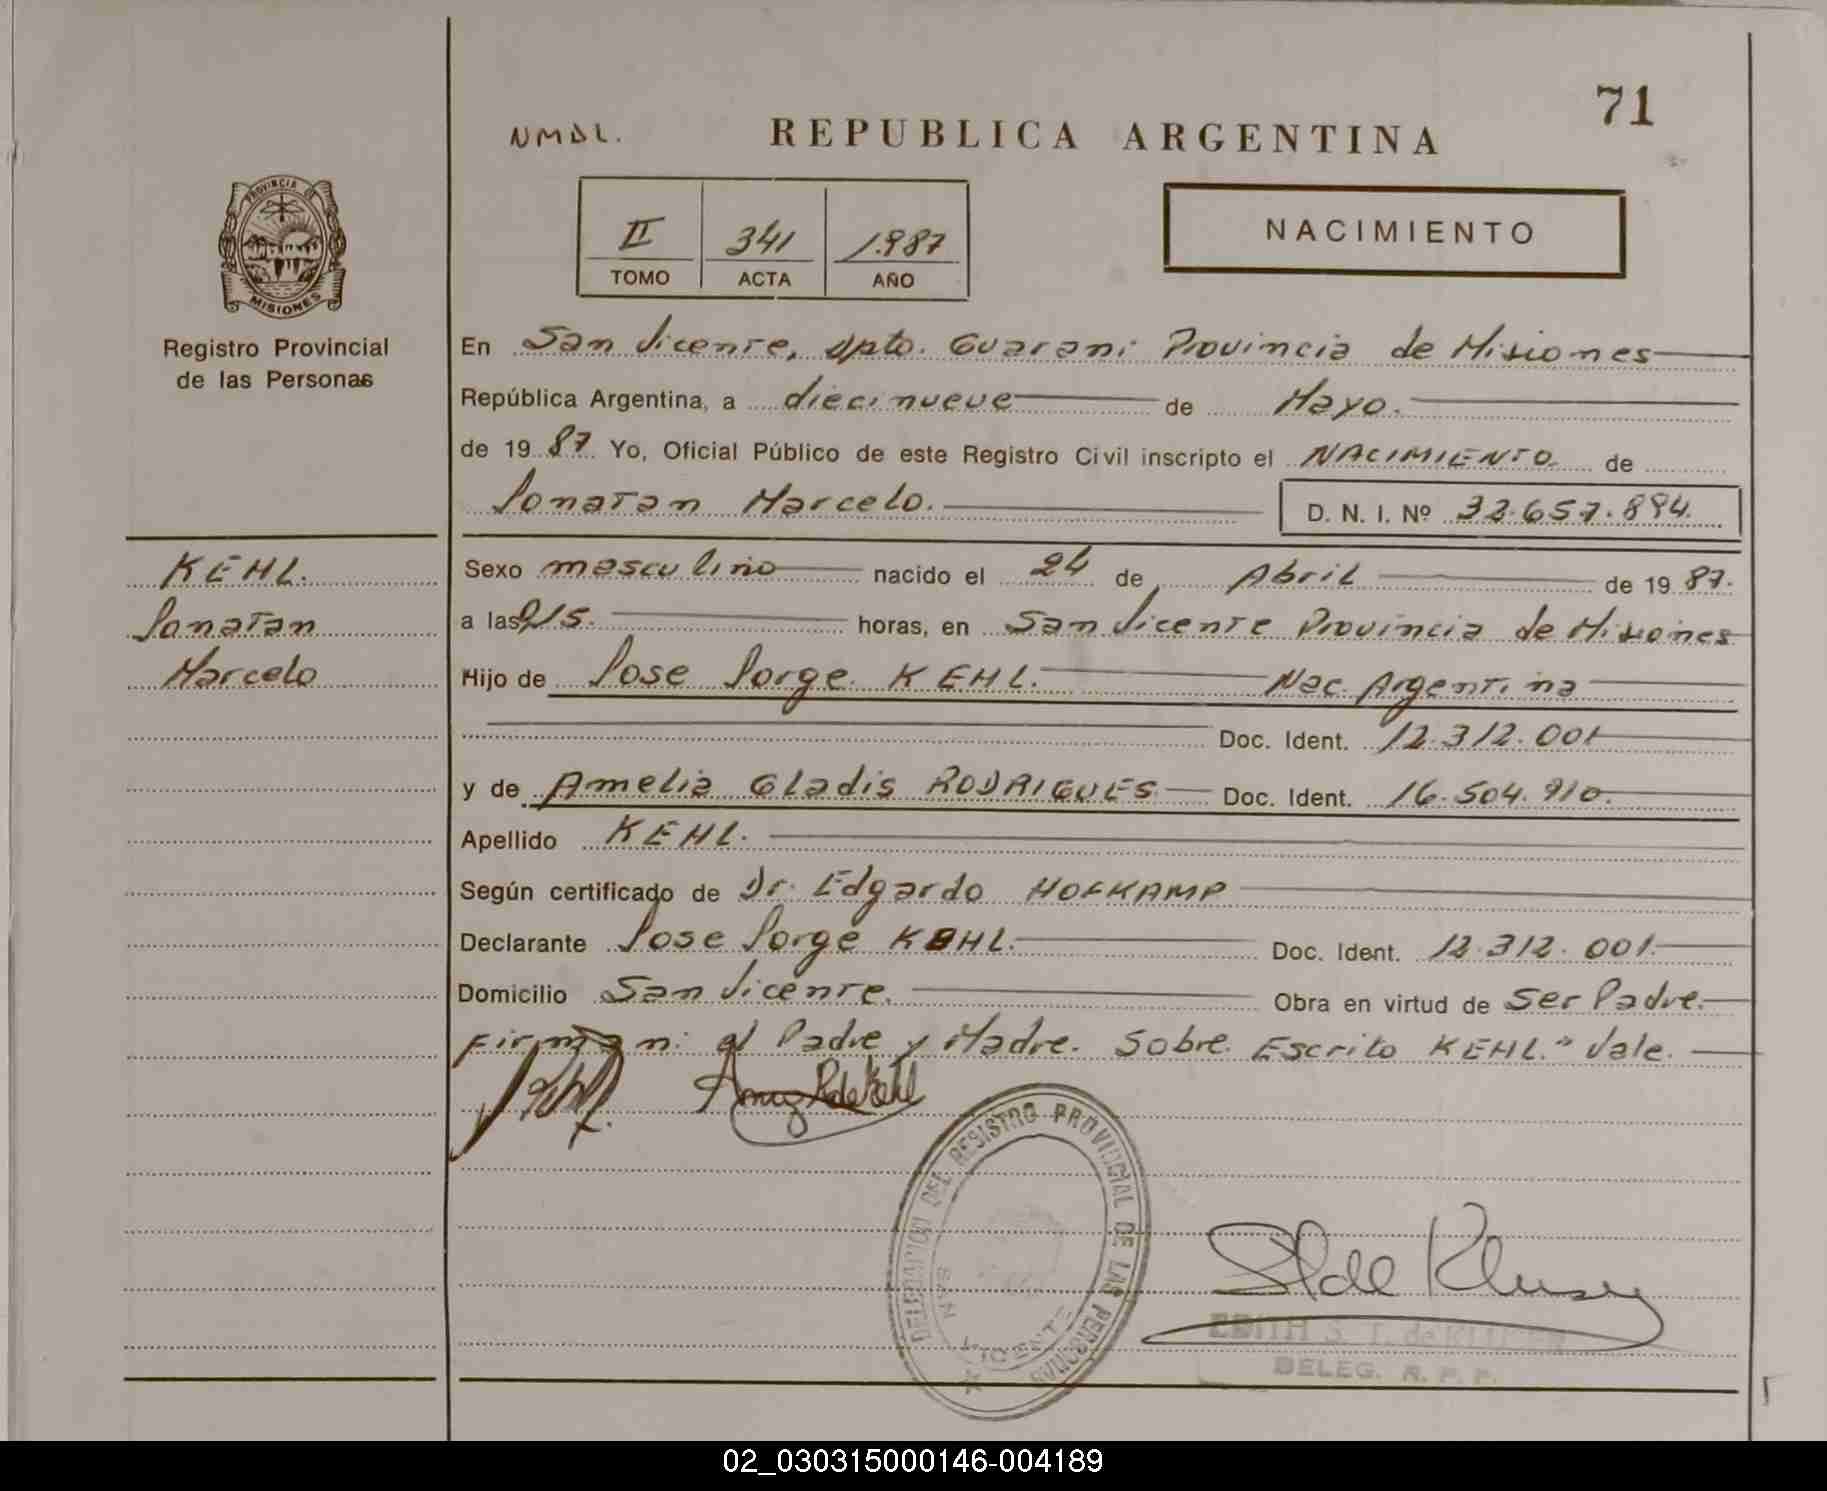 71
NMDL.
REPUBLICA ARGENTINA
PROVINCIA DE
MISIONES
Registro Provincial
de las Personas
II 341 1.987
TOMO ACTA AÑO
NACIMIENTO
En San Vicente, dpto. Guarani Provincia de Misiones
República Argentina, a diecinueve de Mayo.
de 19 87. Yo, Oficial Público de este Registro Civil inscripto el NACIMIENTO. de
Jonatan Marcelo.
D. N. I. Nº 32.657.894.
KEHL.
Jonatan
Marcelo
Sexo masculino nacido el 24 de Abril de 19 87.
a las 9,15. horas, en San Vicente Provincia de Misiones
Hijo de Jose Jorge KEHL. Nac. Argentina
Doc. Ident. 12.312.001
y de Amelia Gladis RODRIGUES Doc. Ident. 16.504.910.
Apellido KEHL.
Según certificado de Dr. Edgardo HOFKAMP
Declarante Jose Jorge KEHL. Doc. Ident. 12.312.001.
Domicilio San Vicente. Obra en virtud de Ser Padre.
Firman: el Padre y Madre. Sobre Escrito KEHL." Vale.
DELEGACION DEL REGISTRO PROVINCIAL DE LAS PERSONAS
SAN VICENTE
EDITH S. I. de
DELEG. R. P. P.
02_030315000146-004189